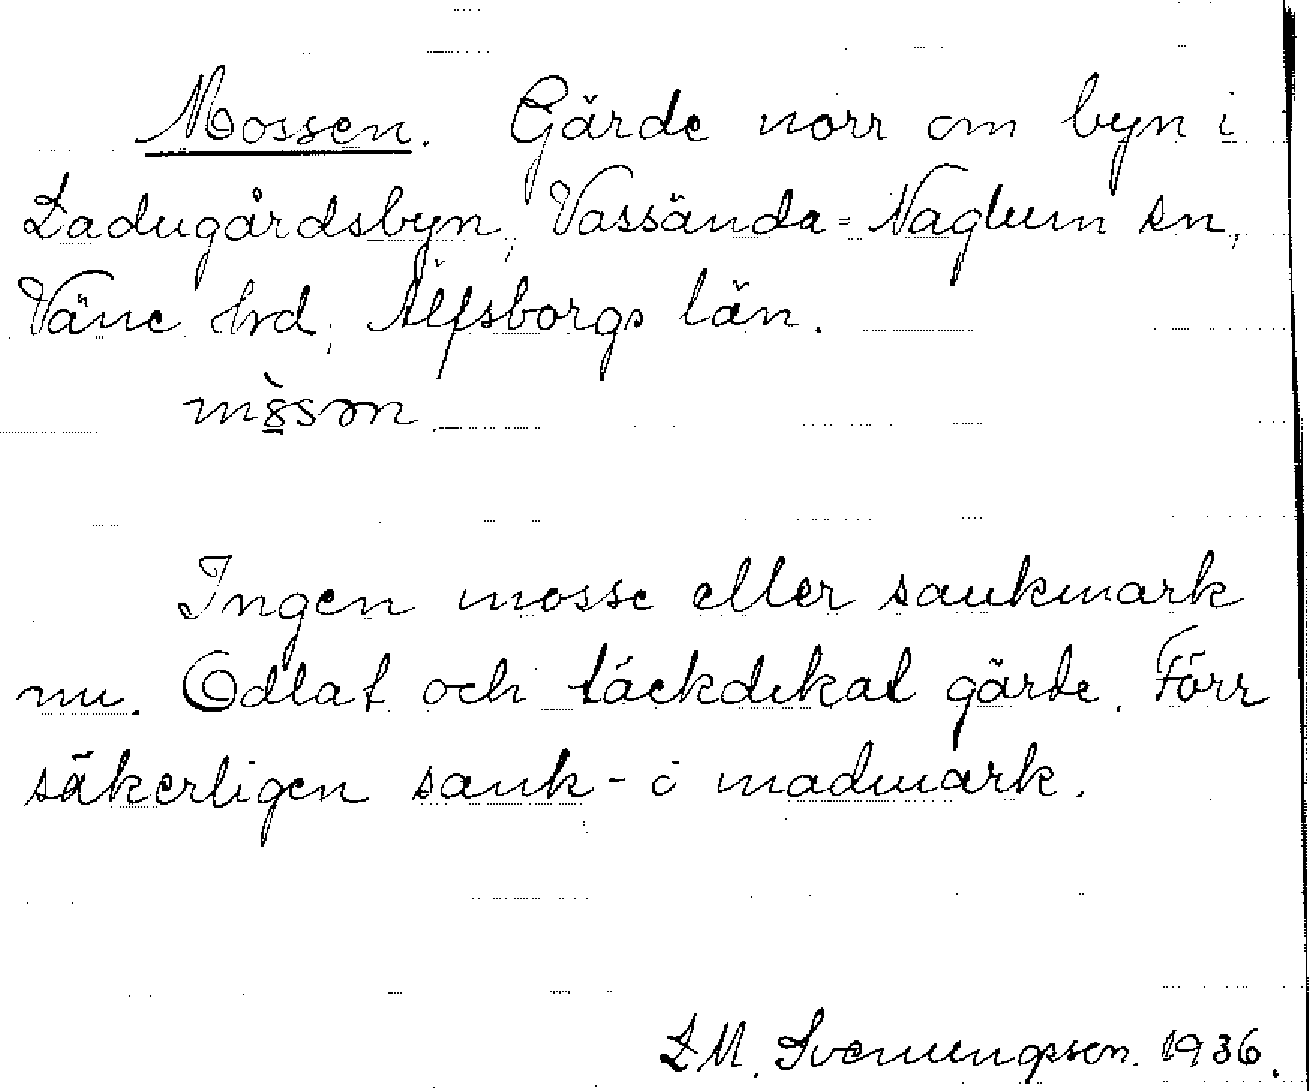 Mossen. Gärde norr om byn i
Ladugårdsbyn, Vassända=Naglum sn,
Väne hrd, Älfsborgs län.
Ingen mosse eller sankmark
nu. Odlat och täckdikat gärde. Förr
säkerligen sank- o madmark.
L M. Svenungsson. 1936.